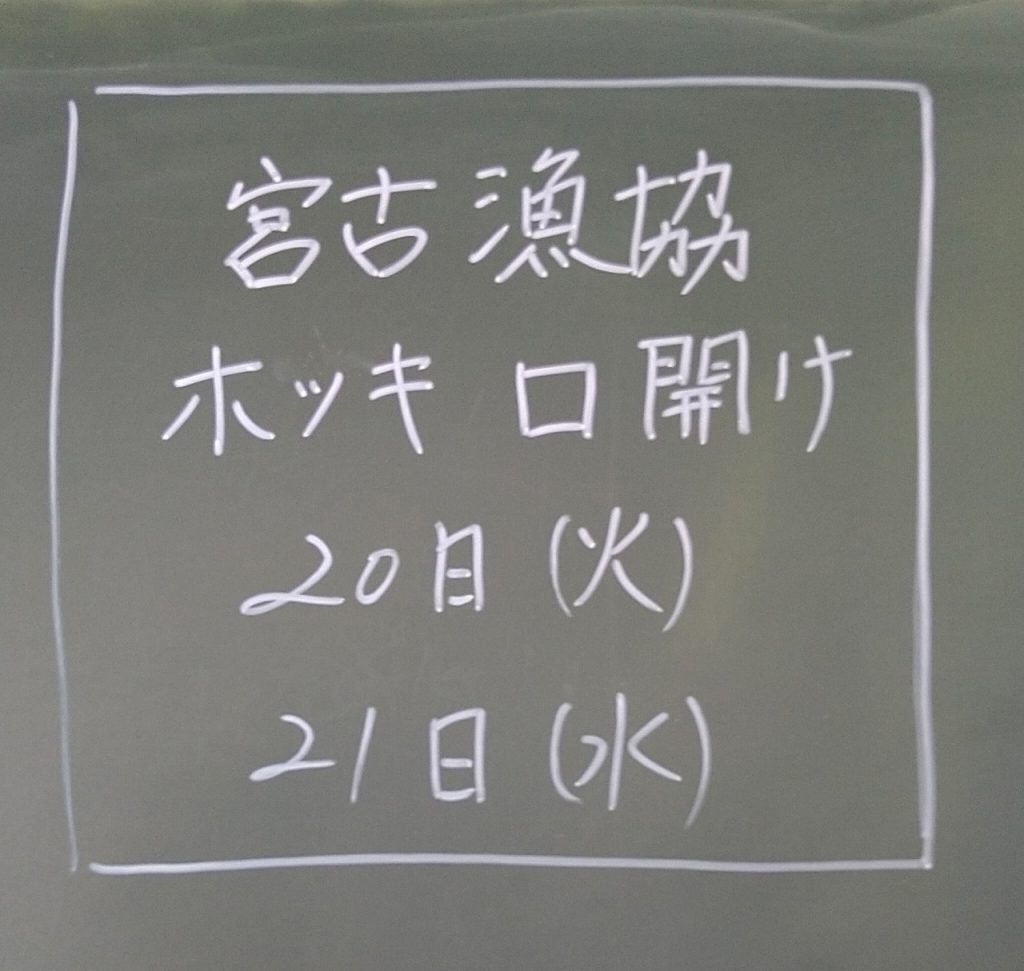 宮古漁協
ホッキ 口開け
20日(火)
21日(水)